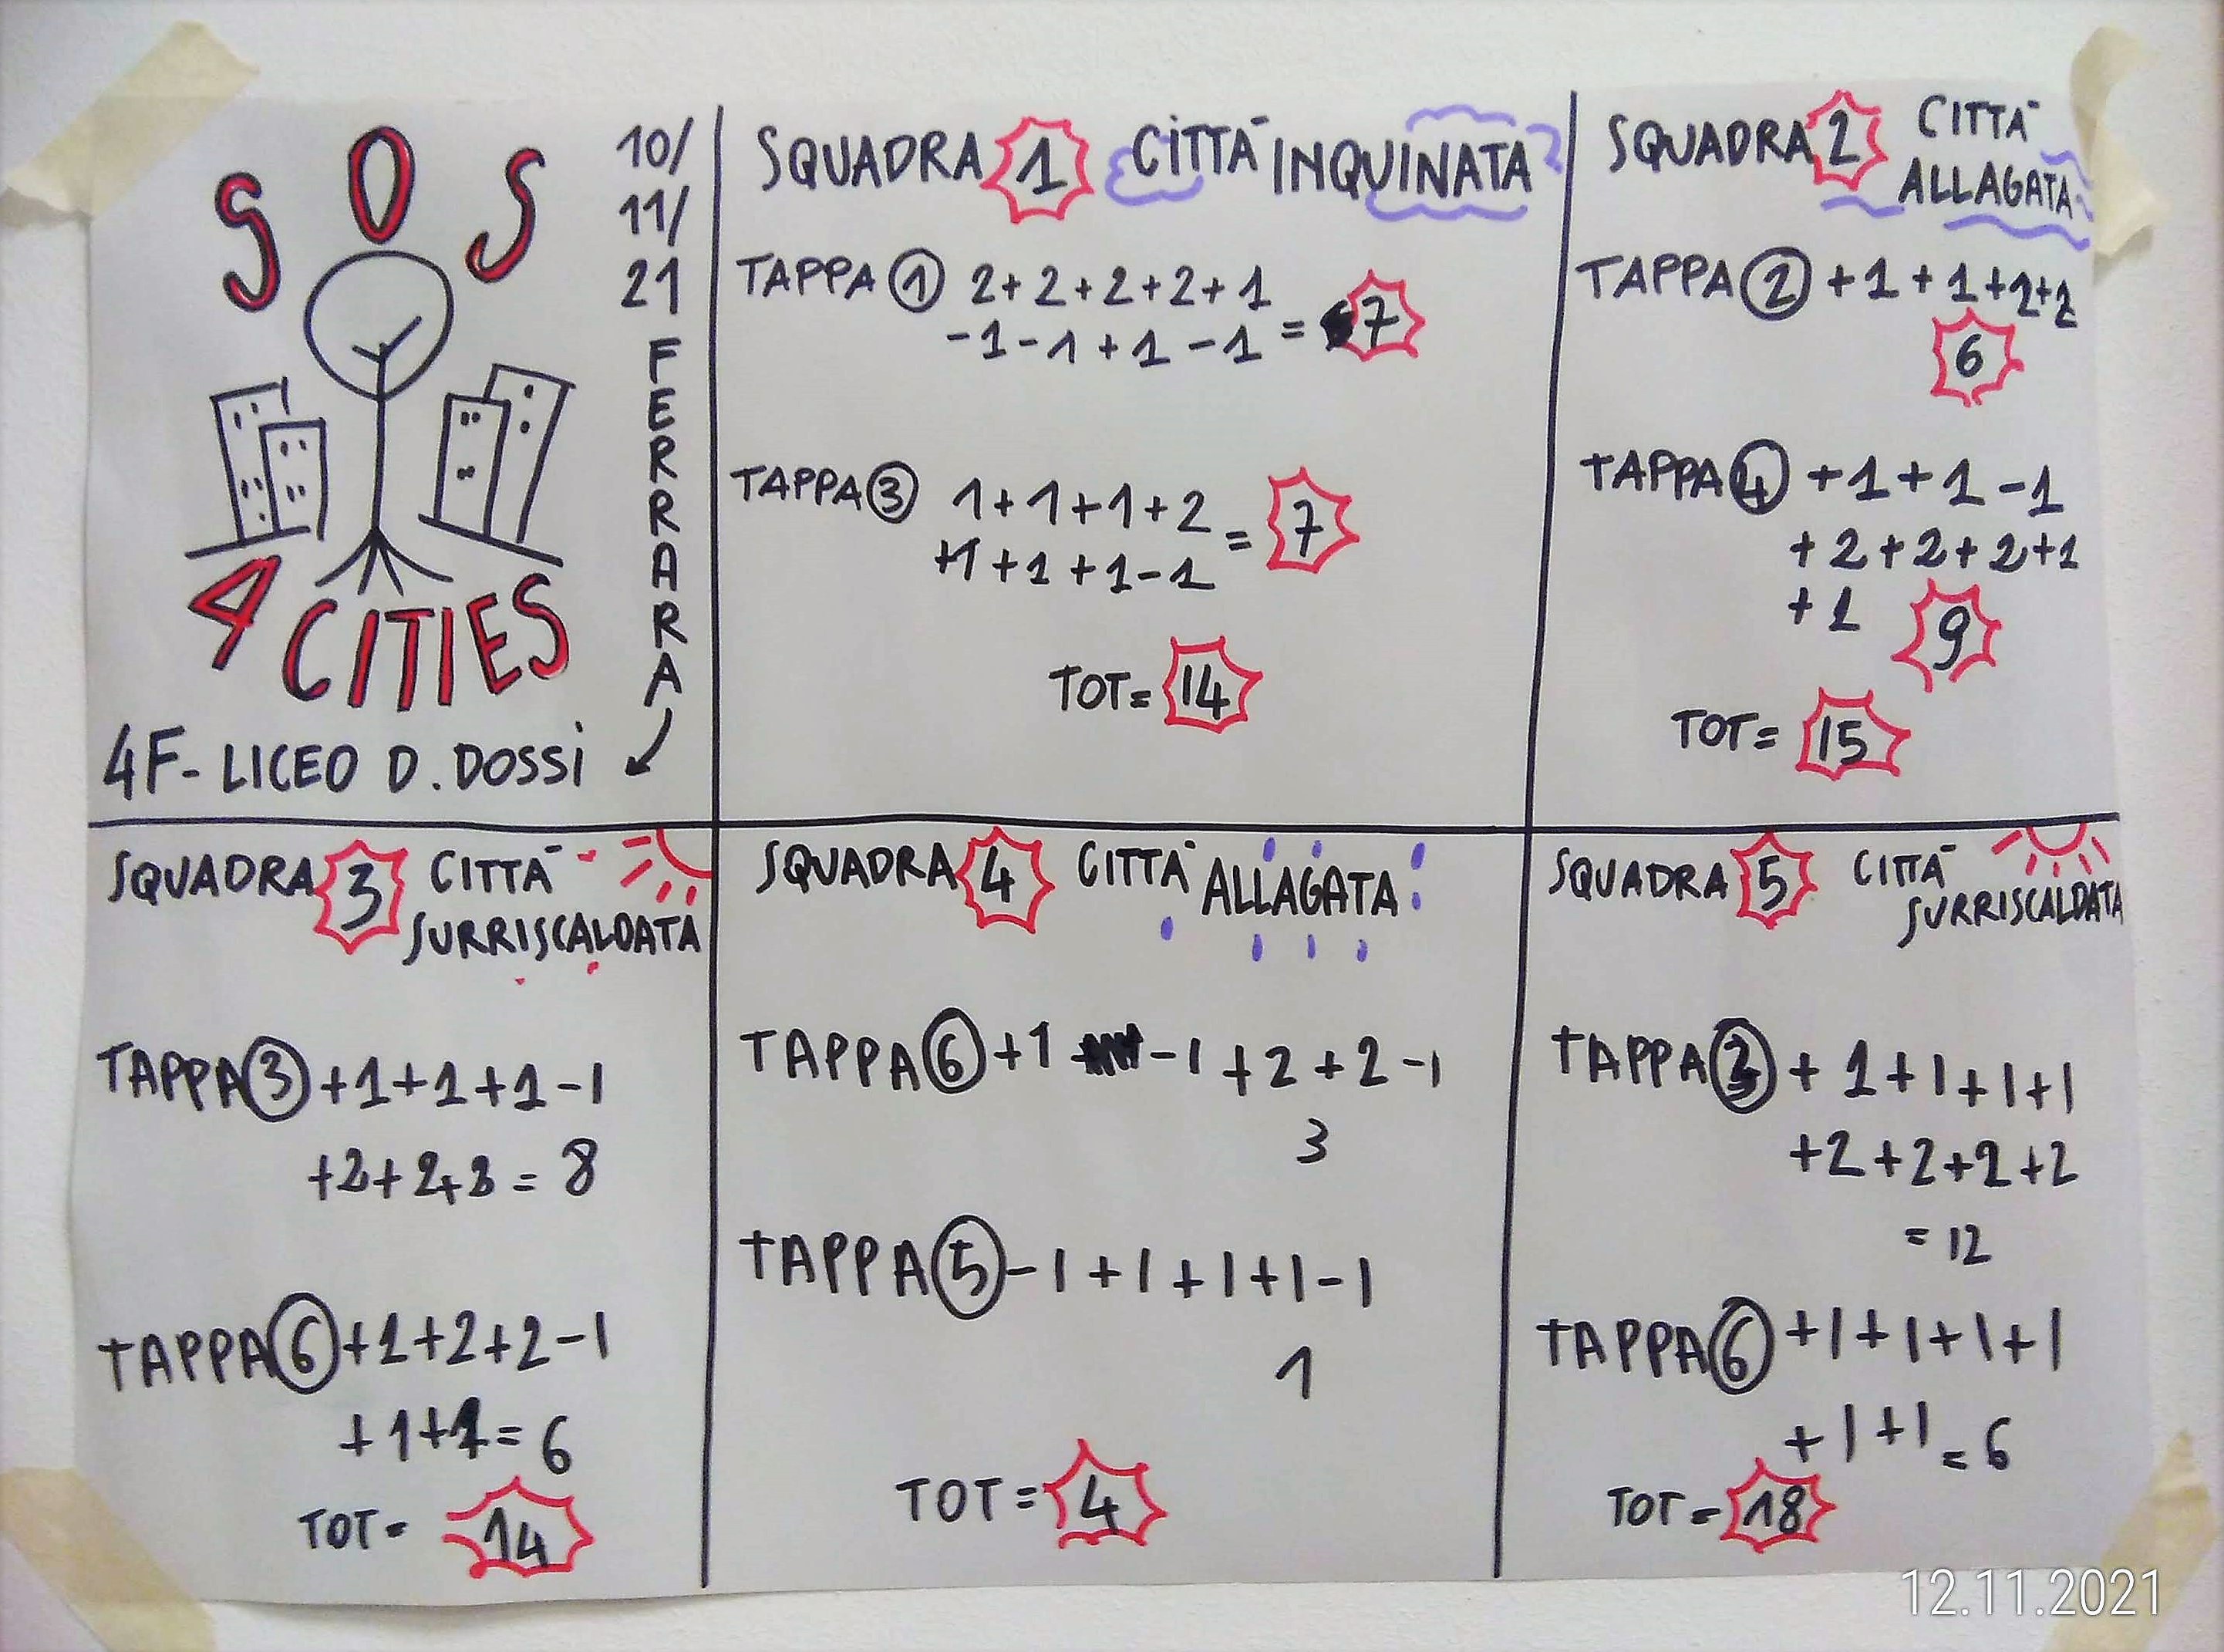 SOS
4 CITIES
10/
11/
21
FERRARA
4F- LICEO D. DOSSI
SQUADRA 1 CITTÀ INQUINATA
TAPPA 1 2+2+2+2+1
-1-1+1-1 = 7
TAPPA 3 1+1+1+2
+1+1+1-1 = 7
TOT= 14
SQUADRA 2 CITTÀ
ALLAGATA
TAPPA 2 +1+1+2+2
6
TAPPA 4 +1+1-1
+2+2+2+1
+1 9
TOT= 15
SQUADRA 3 CITTÀ
SURRISCALDATA
TAPPA 3 +1+1+1-1
+2+2+2 = 8
TAPPA 6 +1+2+2-1
+1+1= 6
TOT= 14
SQUADRA 4 CITTÀ ALLAGATA
TAPPA 6 +1 -1+2+2-1
3
TAPPA 5 -1+1+1+1-1
1
TOT= 4
SQUADRA 5 CITTÀ
SURRISCALDATA
TAPPA +1+1+1+1
+2+2+2+2
= 12
TAPPA 6 +1+1+1+1
+1+1=6
TOT= 18
12.11.2021